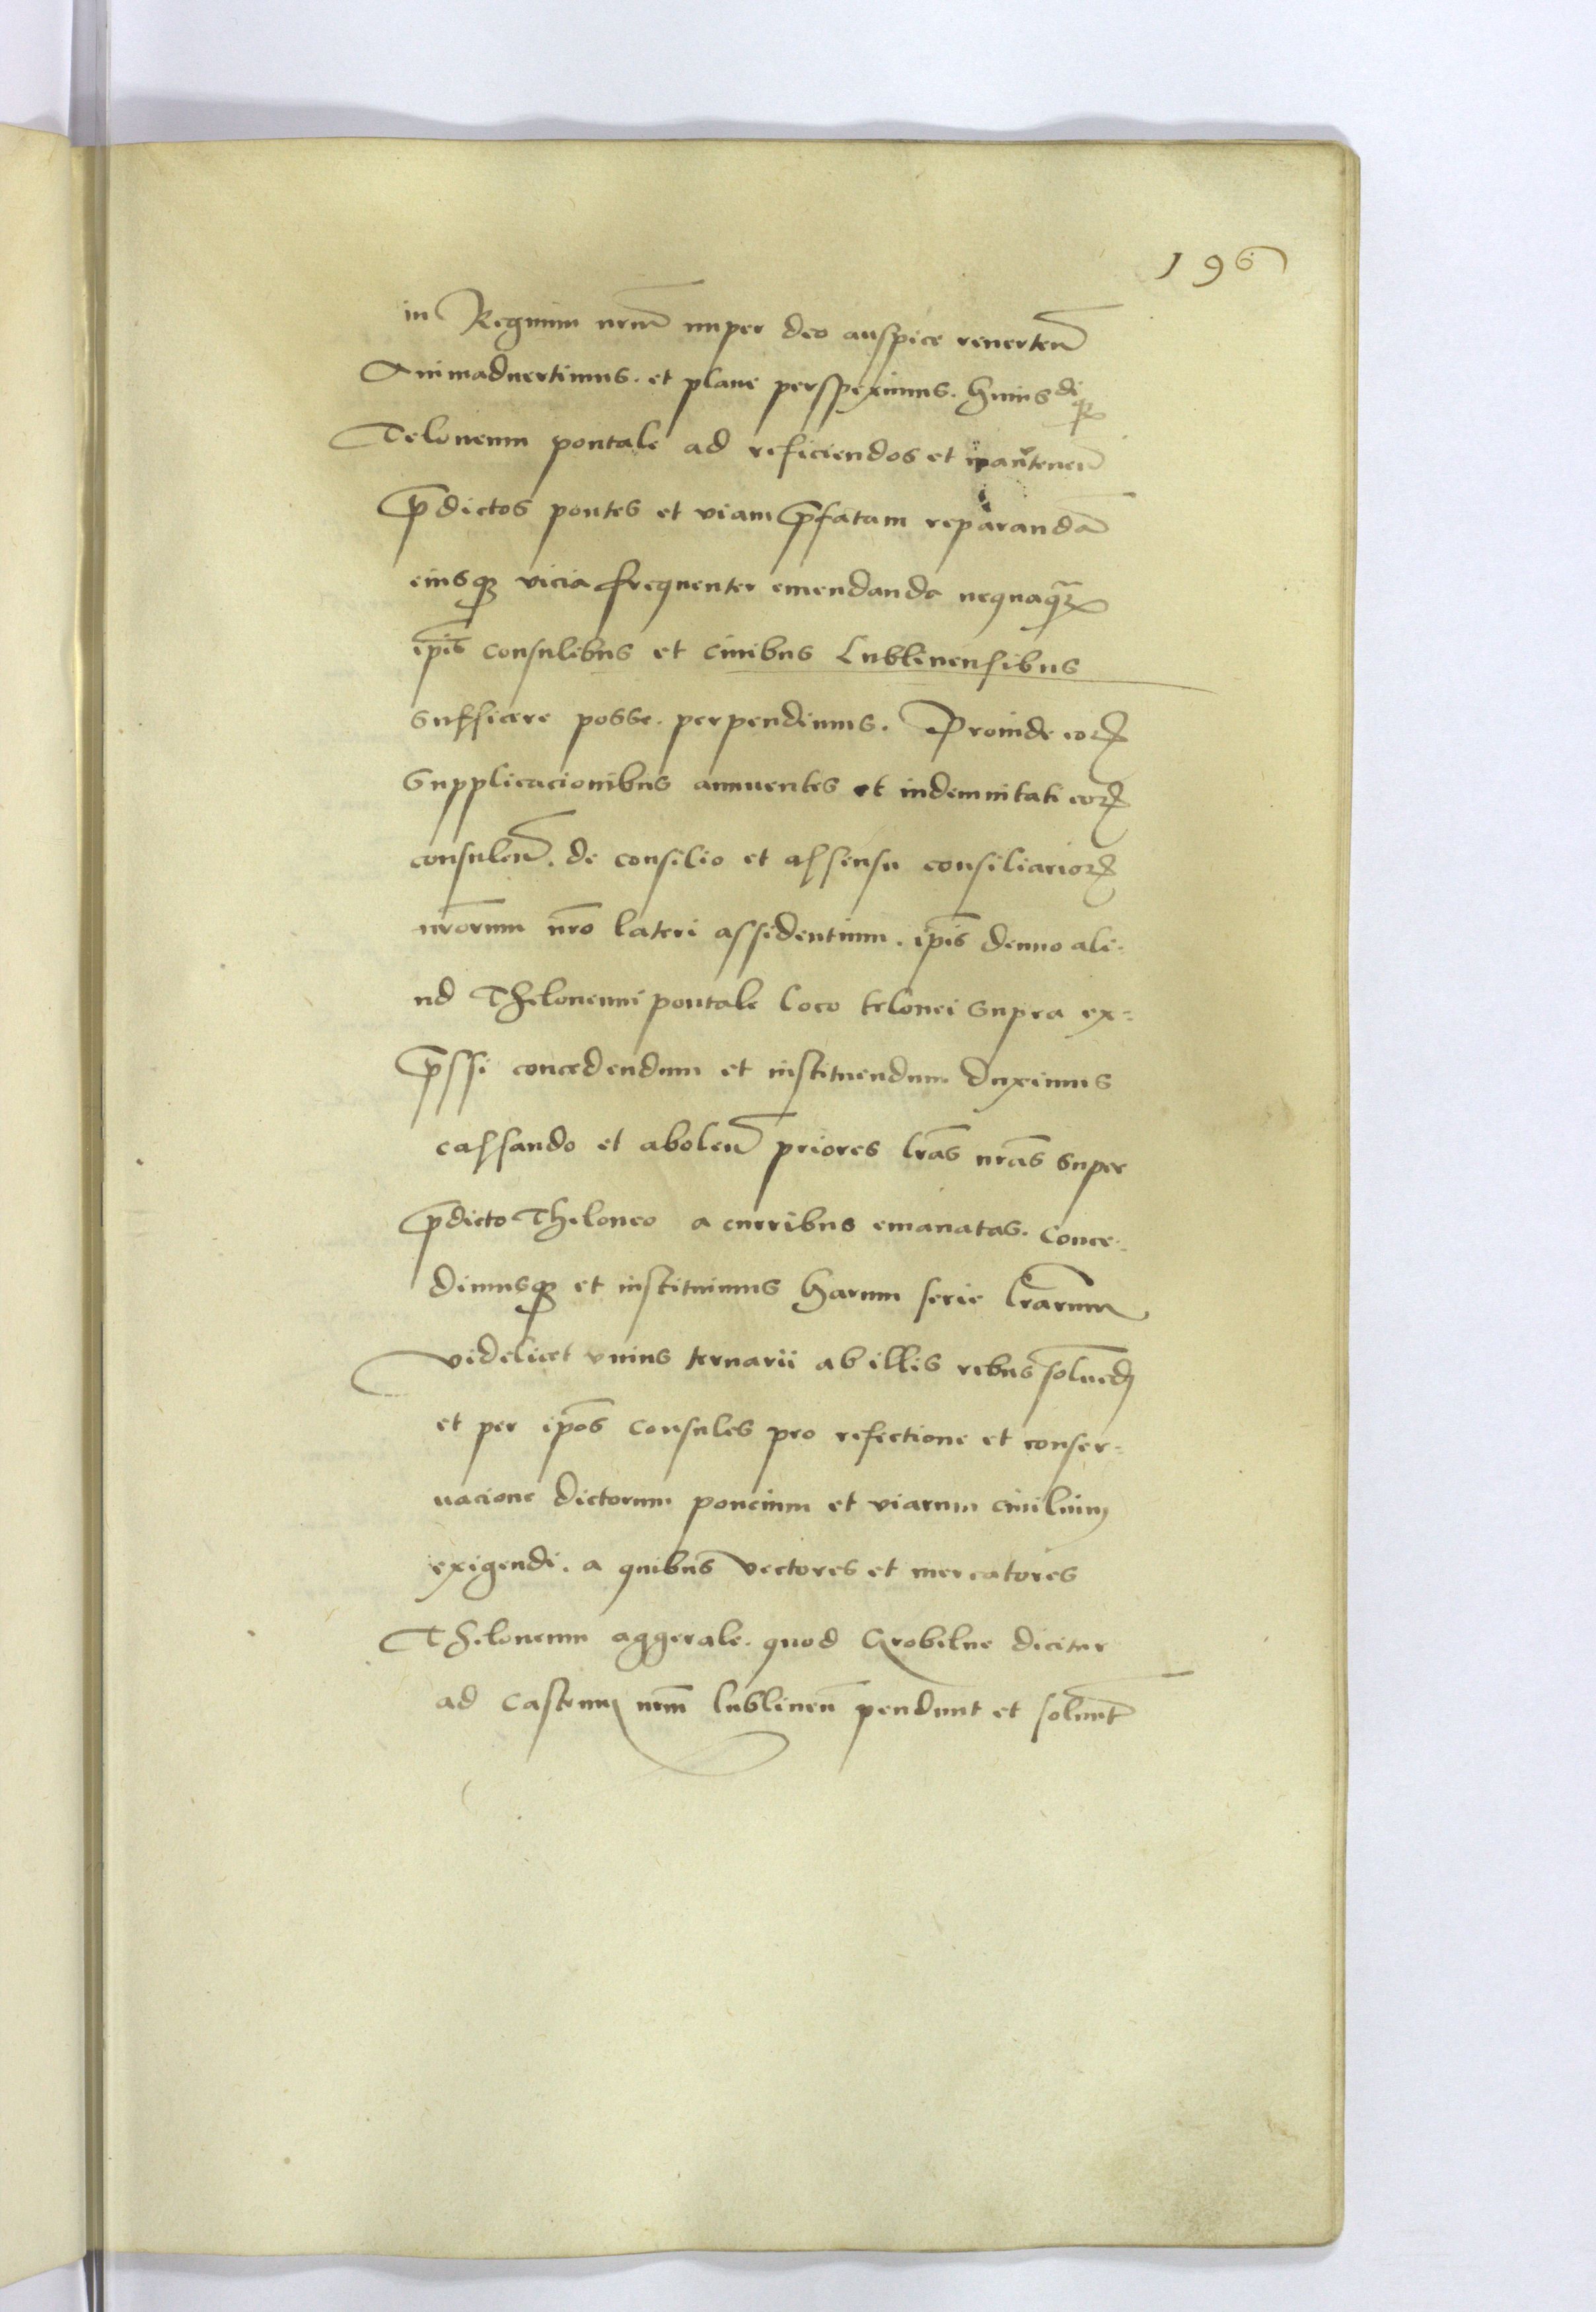 196
in Regnum nrm̄ nuper deo auspice reuerteñ
Animaduertimus. et plane perspeximus. huius di qȝ
Teloneum pontale ad reficiendos et manteneñ
p̄dictos pontes et viam p̄fatam reparandā
eiusqȝ vicia frequenter emendanda nequaqȝ̄
ip̄is consulibus et ciuibus Lublinensibus
sufficere posse. perpendimus. Proinde eoꝝ
supplicacionibus annuentes et indemnitati eoꝝ
consuleñ. de consilio et assensu consiliarioꝝ
nr̄orum nr̄o lateri assidentium. ip̄is denuo ali-
ud Theloneum pontale loco telonei supra ex=
p̄ssi concedendum et instituendum duximus
cassando et aboleñ priores lr̄as nr̄as super
p̄dicto Theloneo a curribus emanatas. Conce-
dimusqȝ et instituimus harum serie lr̄arum
videlicet vnius ternarii ab illis rebus soluend
et per ip̄os Consules pro refectione et conser=
uacione dictorum poncium et viarum ciuilium
exigendi. a quibus vectores et mercatores
Theloneum aggerale. quod Grobelne dicitur
ad castrum nr̄m lublineñ pendunt et soluunt